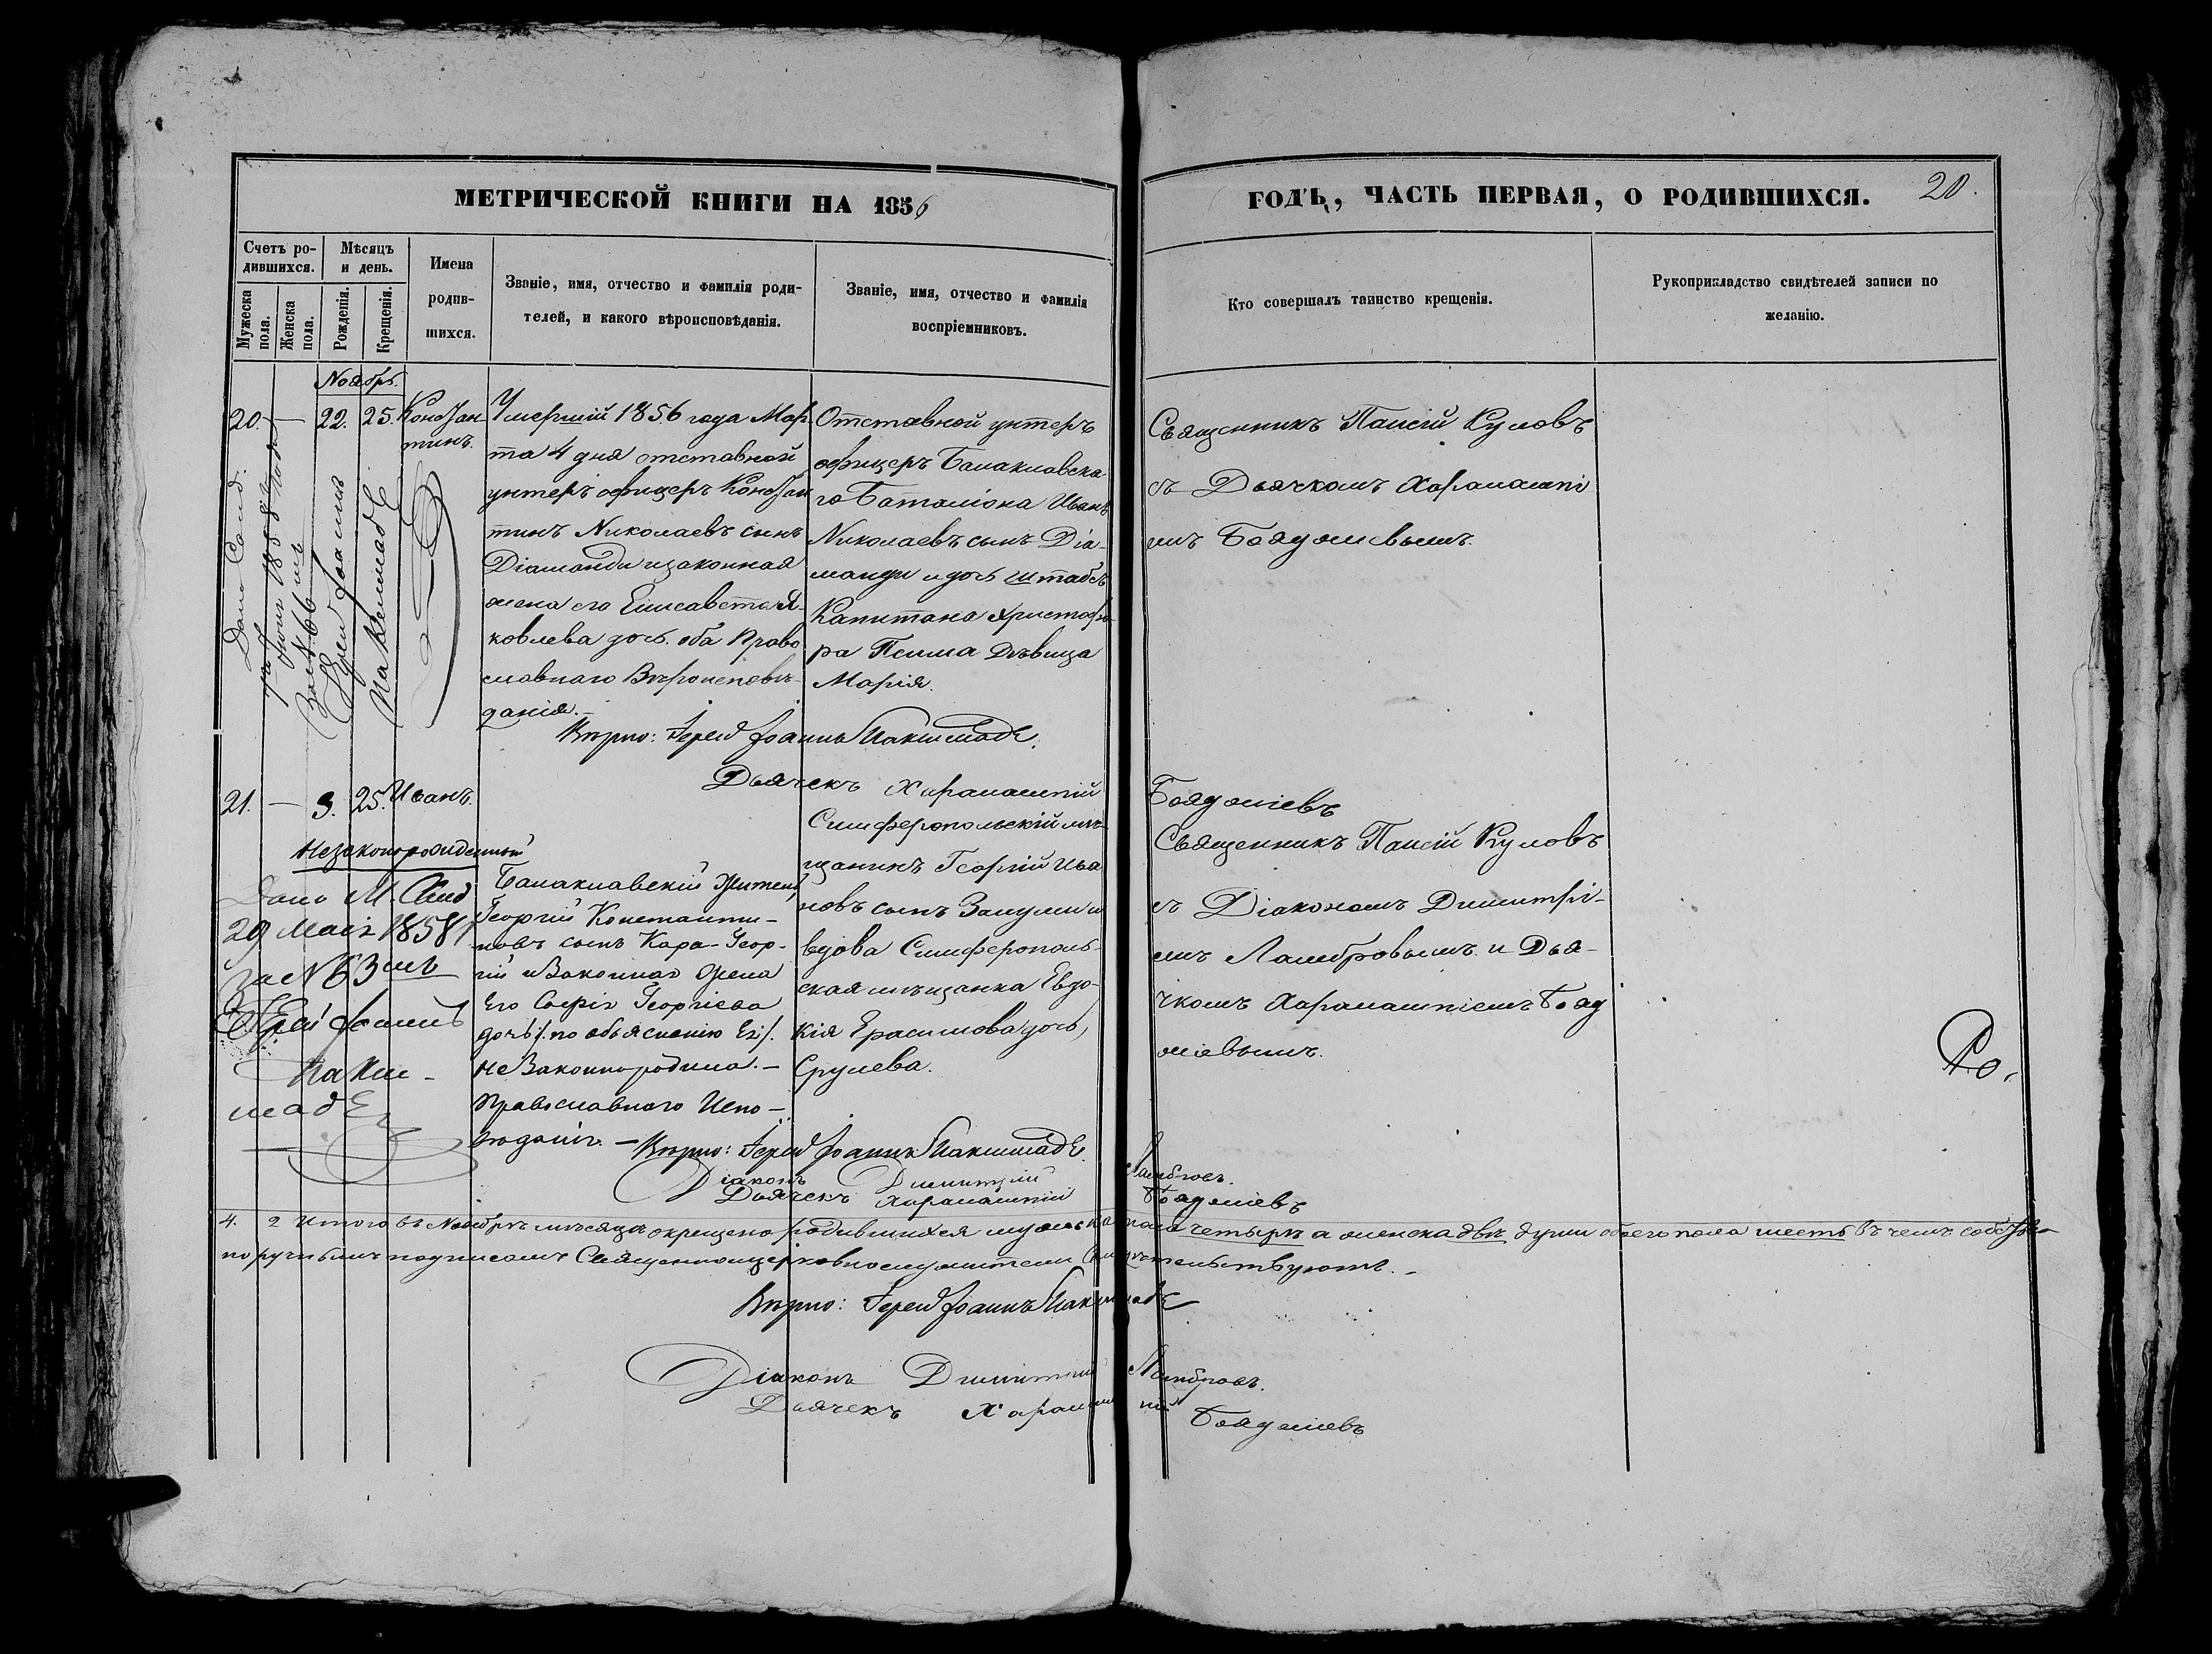 МЕТРИЧЕСКОЙ КНИГИ НА 1856
ГОДЪ, ЧАСТЬ ПЕРВАЯ, О РОДИВШИХСЯ.
20.
Счетъ ро-
дившихся.
Мужеска
пола.
Женска
пола.
Мѣсяцъ
и день.
Рожденія.
Крещенія.
Имена
родив-
шихся.
Званіе, имя, отчество и фамилія роди-
телей, и какого вѣроисповѣданія.
Званіе, имя, отчество и фамилія
воспріемниковъ.
Кто совершалъ таинство крещенія.
Рукоприкладство свидѣтелей записи по
желанію.
Ноябрь.
20. — 22. 25. Констан-
тинъ.
Умершій 1856 года Мар
та 4 дня отставной
унтеръ офицеръ Констан
тинъ Николаевъ сынъ
Діаманди и законная
жена его Елисавета Я-
ковлева дочь. оба Право
славнаго Вѣроисповѣ-
данія.—
Отставной унтеръ
офицеръ Балаклавска
го Баталіона Иванъ
Николаевъ сынъ Діа-
манди и дочь штабсъ
Капитана Христофо-
ра Псима Дѣвица
Марія.
Священникъ Паисій Куловъ
съ Дьячкомъ Харалампі
емъ Бояджевымъ.
Дано Свид.
1858 года
за № 66мъ
Іерей Іоаннъ
Вѣрно: Іерей Іоаннъ
Дьячекъ Харалампій
Бояджіевъ
21. — 3. 25. Иванъ.
Незаконорожденный
Балаклавскій Житель
Георгій Константи-
новъ сынъ Кара-Геор-
гій и Законная Жена
Его Софія Георгіева
дочь /: по объясненію Ея :/
не Законнородила.—
Православнаго Испо-
вѣданія.—
Симферопольскій мѣ-
щанинъ Георгій Ива
новъ сынъ и
вдова Симферополь-
ская мѣщанка Евдо-
кія Ерасимова дочь,
Срулева.
Священникъ Паисій Куловъ
съ Діакономъ Димитрі-
емъ Ламбровымъ и Дья-
чкомъ Харалампіемъ Бояд
жіевымъ.
Дано М. Свид
29 Маія 1858 г
за № 63мъ
Іерей Іоаннъ
Вѣрно: Іерей Іоаннъ
Діаконъ Димитрій Ламбровъ.
Дьячекъ Харалампій Бояджіевъ
4. 2 Итого въ Ноябрѣ мѣсяцѣ окрещено родившихся мужеска пола четыре а женска двѣ души обоего пола шесть въ чемъ собстве-
норучнымъ подписомъ Священноцерковнослужители Свидѣтельствуютъ.—
Вѣрно: Іерей Іоаннъ
Діаконъ Димитрій Ламбровъ.
Дьячекъ Харалампій Бояджіевъ